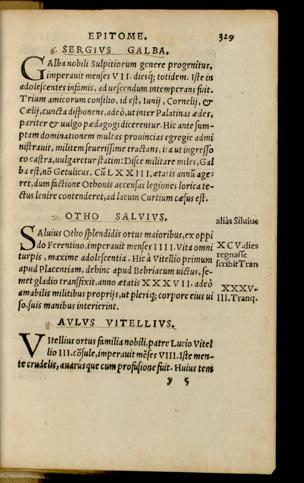 EPITOME. 329
6. SERGIVS GALBA.
GAlba nobili Sulpitiorum genere progenitus,
imperauit menses VII. diesq; totidem. Iste in
adolescentes infamis, ad uescendum intemperans fuit.
Trium amicorum consilio, id est, Iunij, Cornelij, &
Cælij, cuncta disponens, adeò, ut inter Palatinas ædes,
pariter & uulgo pædagogi dicerentur. Hic ante sum-
ptam dominationem multas prouincias egregiè admi
nistrauit, militem seuerissimè tractans, ita ut ingresso
eo castra, uulgaretur statim: Disce militare miles, Gal
ba est, nō Getulicus. Cū LXXIII. ætatis annū age-
ret, dum factione Othonis accensas legiones lorica te-
ctus lenire contenderet, ad lacum Curtium cæsus est.
OTHO SALVIVS.
SAluius Otho splendidis ortus maioribus, ex oppi
do Ferentino, imperauit menses IIII. Vita omni
turpis, maximè adolescentia. Hic à Vitellio primum
apud Placentiam, debinc apud Bebriacum uictus, se-
met gladio transfixit, anno ætatis XXXVII. adeò
amabilis militibus proprijs, ut pleriq; corpore eius ui
so, suis manibus interierint.
aliàs Siluius
XCV. dies
regnasse
scribit Tran
XXXV-
III. Tranq.
AVLVS VITELLIVS.
VItellius ortus familia nobili, patre Lucio Vitel
lio III. cōsule, imperauit mēses VIII. Iste men-
te crudelis, auarusque cum profusione fuit. Huius tem
y 5